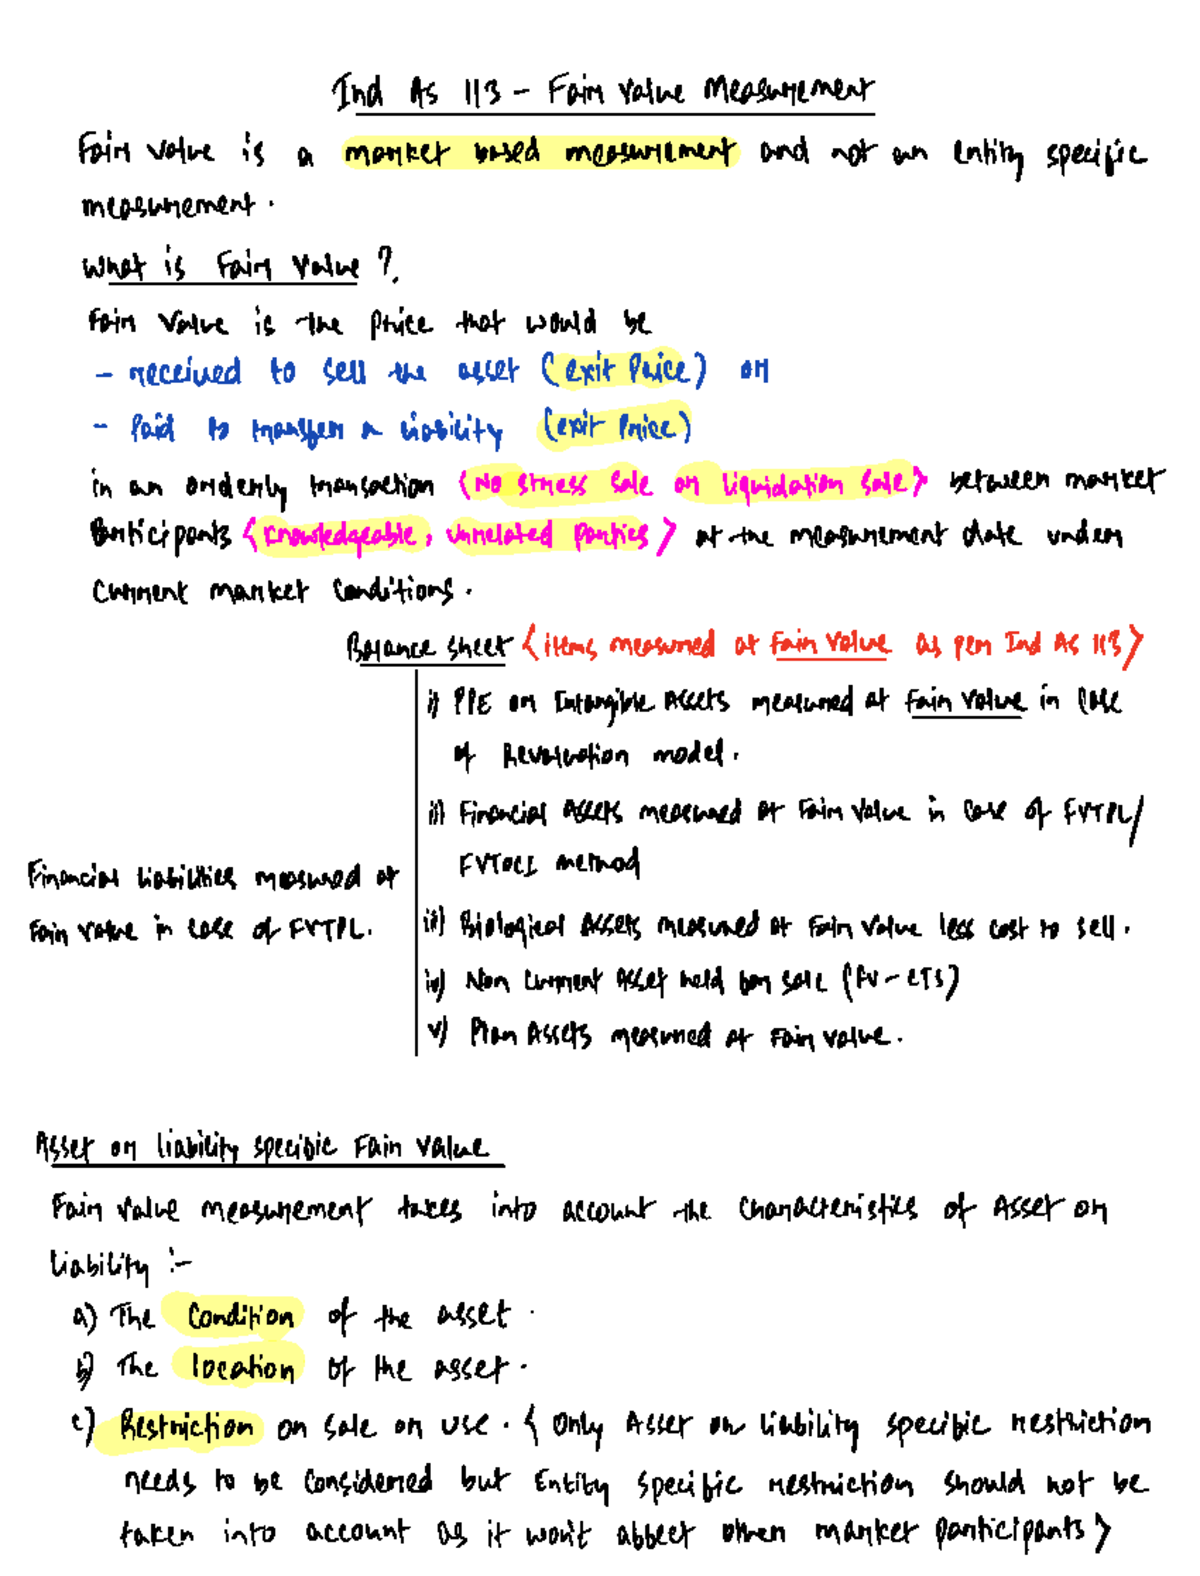 Ind As 113 - Fair Value Measurement
Fair Value is a market based measurement and not an entity specific
measurement.
What is Fair Value ?
Fair Value is the price that would be
- received to sell the asset (exit Price) or
- Paid to transfer a liability (exit Price)
in an orderly transaction {No stress Sale or liquidation Sale} between market
Participants {knowledgeable, unrelated parties} at the measurement date under
Current market Conditions.
Balance sheet {items measured at Fair Value as per Ind As 113}
i) PPE or Intangible Assets measured at Fair Value in case
of Revaluation model.
ii) Financial Assets measured at Fair Value in case of FVTPL/
FVTOCI method
Financial Liabilities measured at
Fair Value in case of FVTPL.
iii) Biological Assets measured at Fair Value less cost to sell.
iv) Non Current Asset held for sale (FV-CTS)
v) Plan Assets measured at Fair Value.
Asset or liability specific Fair Value
Fair Value measurement takes into account the characteristics of Asset or
liability :-
a) The Condition of the asset.
b) The location of the asset.
c) Restriction on sale or use. { Only Asset or liability specific restriction
needs to be Considered but Entity Specific restriction should not be
taken into account as it won't affect other market participants}